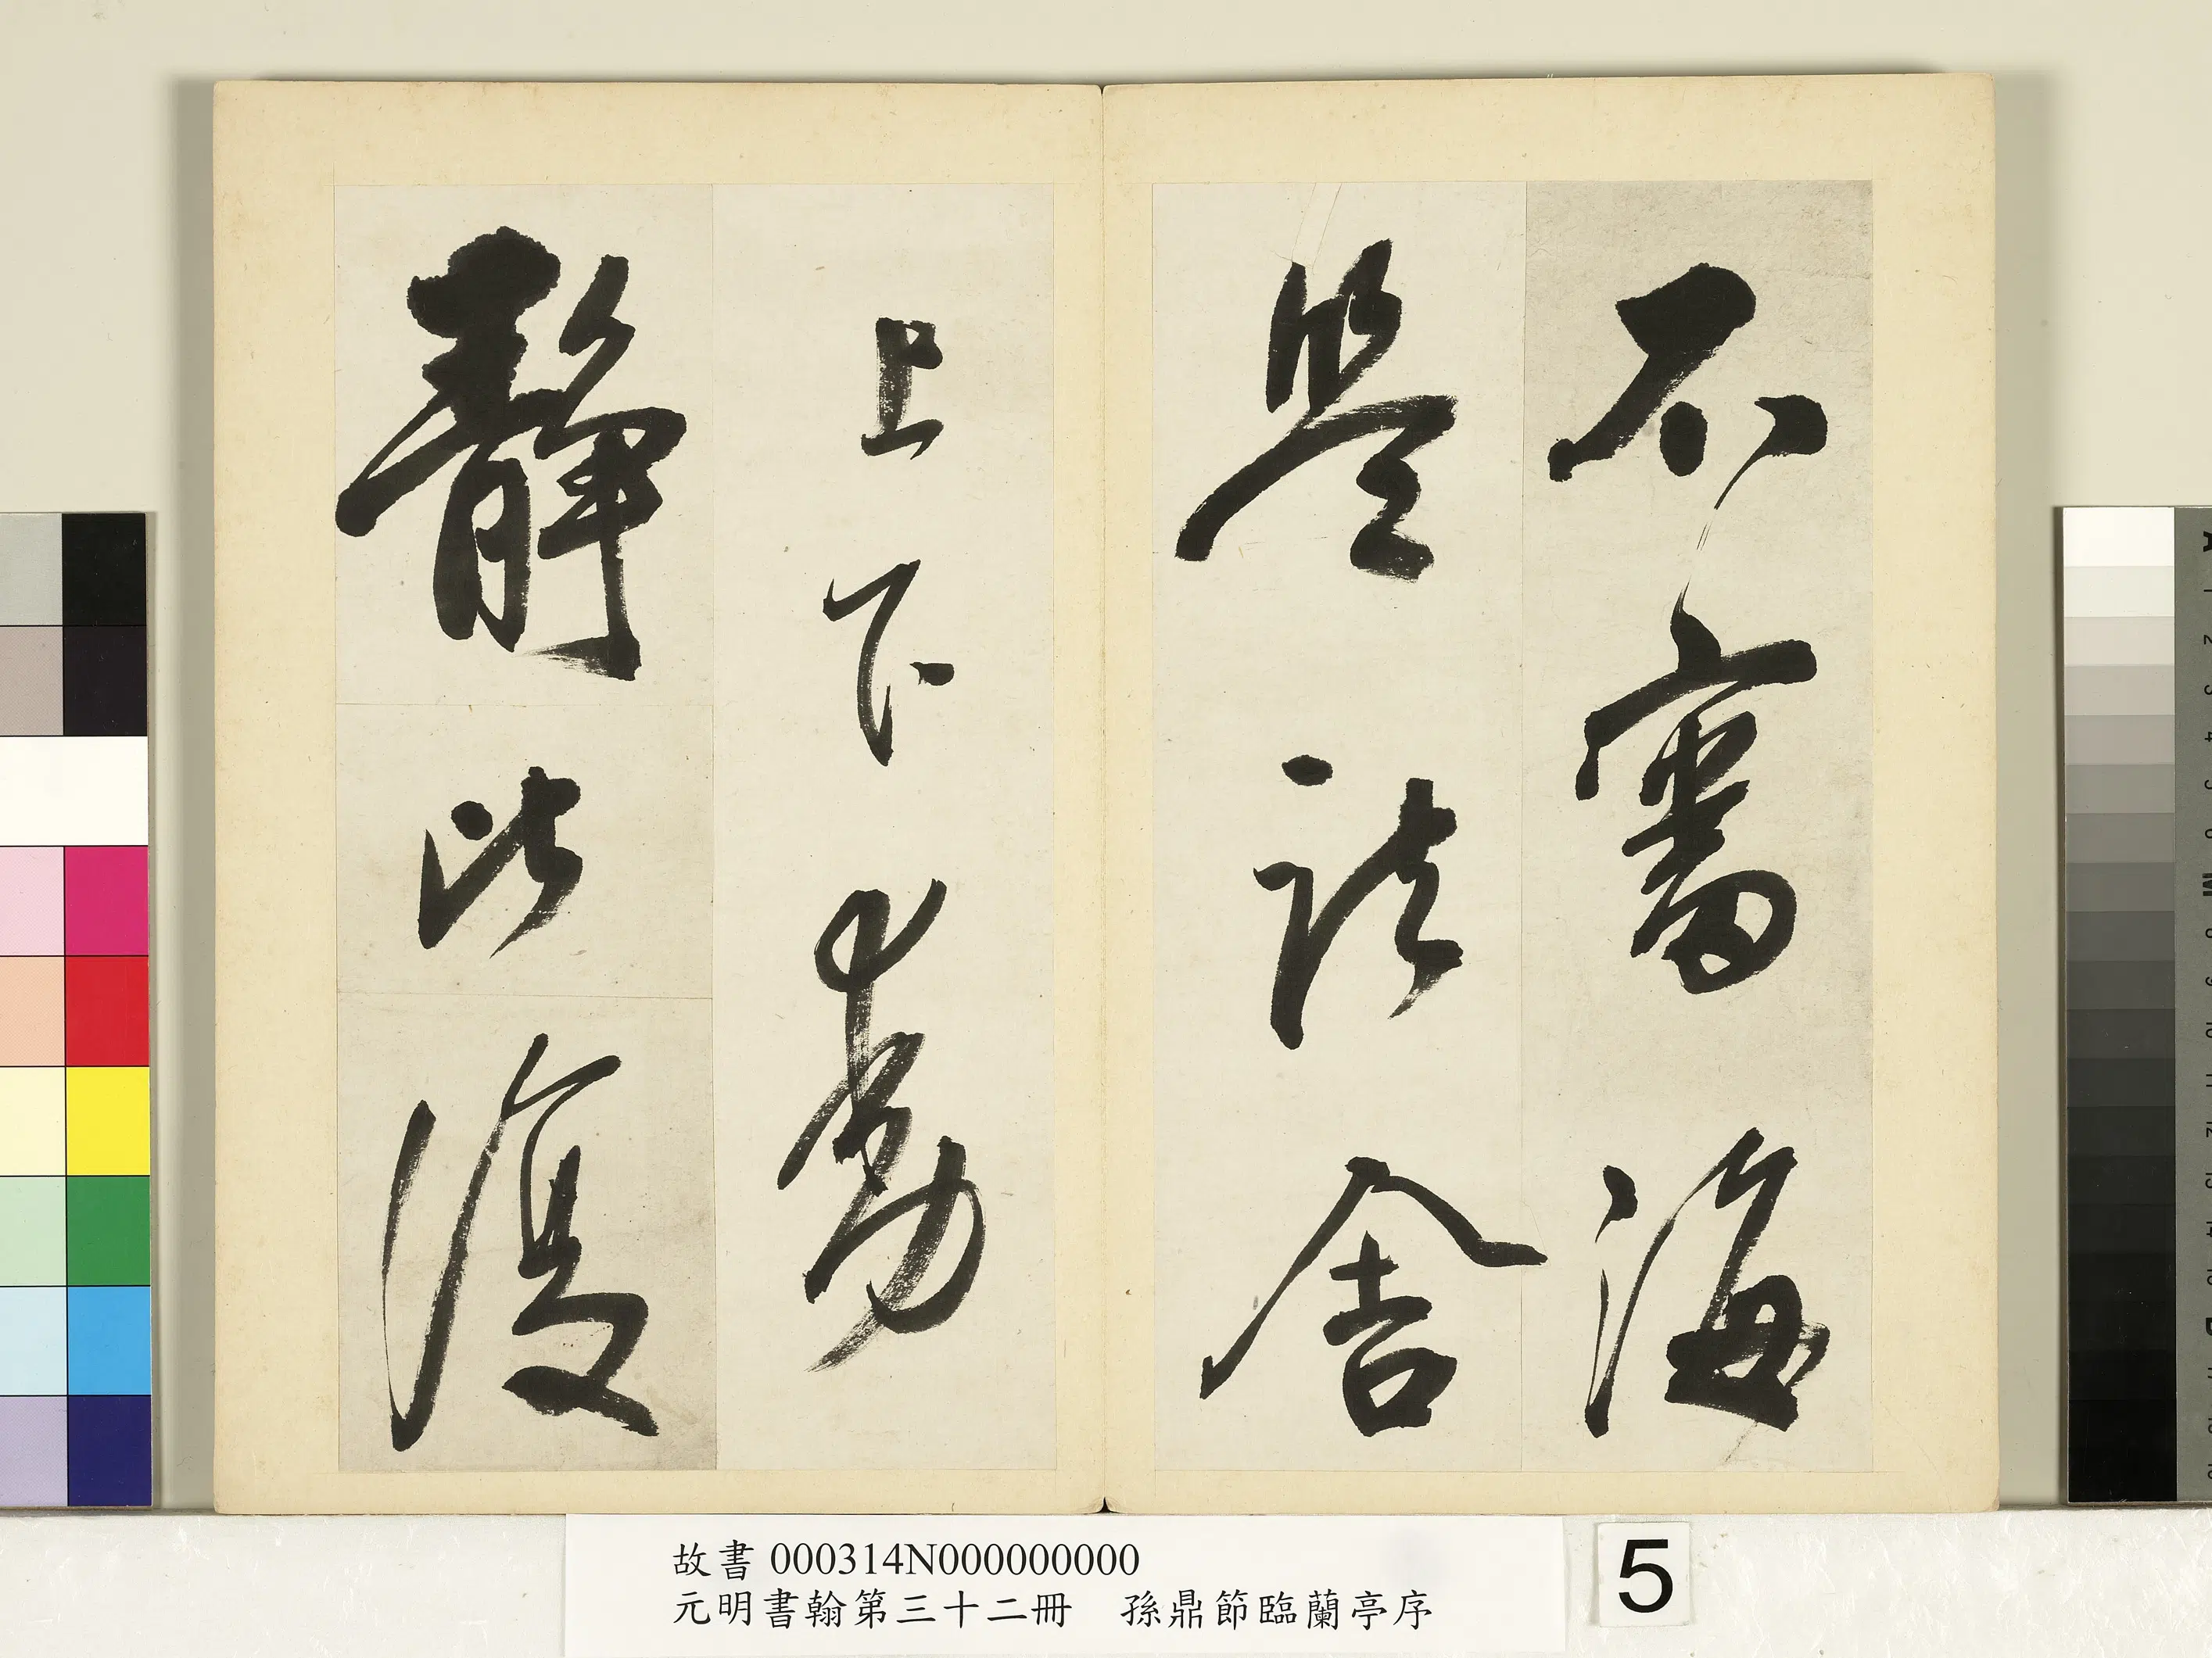 不審海
是法舍
上下動
靜比復
故書 000314N000000000
元明書翰第三十二冊　孫鼎節臨蘭亭序
5